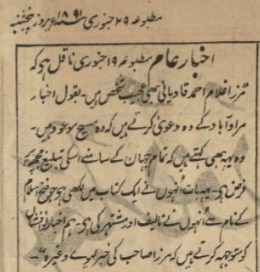 مطبوعہ ۲۹ جنوری ۱۸۹۱ء روز پنجشنبہ
اخبار عام مطبوعہ ۱۹ جنوری ناقل ہے کہ
مرزا غلام احمد قادیانی بھی عجیب شخص ہیں۔ بقول اخبار
مرادآباد کے وہ دعویٰ کرتے ہیں کہ وہ مسیح موعود ہیں۔
وہ یہ بھی کہتے ہیں کہ تمام جہان کے سامنے اسکی تبلیغ مجھپر
فرض ہے۔ یہ بات اُنہوں نے ایک کتاب میں لکھی ہے جو فتح اسلام
کے نام سے اُنہوں نے تالیف اور مشتہر کی ہے۔ ہم اخبار نورافشاں
کو متوجہ کرتے ہیں کہ مرزا صاحب کی خبر لیوے وغیرہ۔"